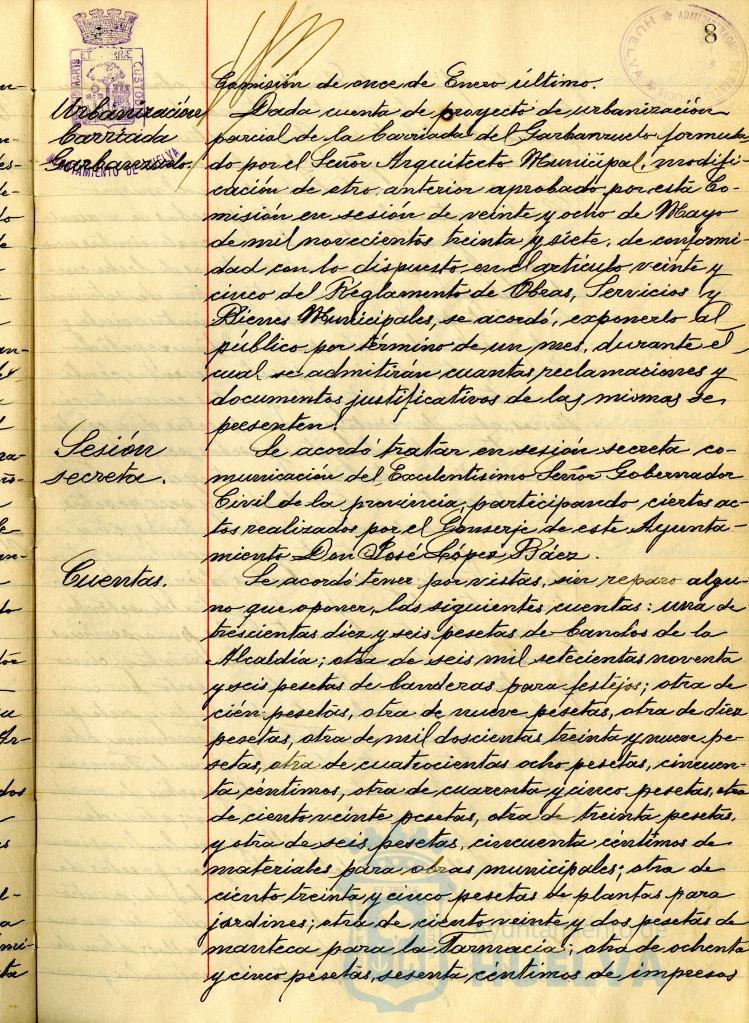 8
Comisión de once de Enero último.
Urbanización
barriada
Garbanzuelo.
AYUNTAMIENTO DE HUELVA
Dada cuenta de proyecto de urbanización
parcial de la barriada del Garbanzuelo formula-
do por el Señor Arquitecto Municipal, modifi-
cación de otro anterior aprobado por esta Co-
misión en sesión de veinte y ocho de Mayo
de mil novecientos treinta y siete, de conformi-
dad con lo dispuesto en el artículo veinte y
cinco del Reglamento de Obras, Servicios y
Bienes Municipales, se acordó, exponerlo al
público por término de un mes, durante el
cual se admitiran cuantas reclamaciones y
documentos justificativos de las mismas se
presenten.
Sesión
secreta.
Se acordó tratar en sesión secreta co-
municación del Excelentísimo Señor Gobernador
Civil de la provincia, participando ciertos ac-
tos realizados por el Conserje de este Ayunta-
miento Don José López Báez.
Cuentas.
Se acordó tener por vistas, sin reparo algu-
no que oponer, las siguientes cuentas: una de
trescientas diez y seis pesetas de bandos de la
Alcaldía; otra de seis mil setecientas noventa
y seis pesetas de banderas para festejos; otra de
cién pesetas, otra de nueve pesetas, otra de diez
pesetas, otra de mil doscientas treinta y nueve pe-
setas, otra de cuatrocientas ocho pesetas, cincuen-
ta céntimos, otra de cuarenta y cinco pesetas, otra
de ciento veinte pesetas, otra de treinta pesetas,
y otra de seis pesetas, cincuenta céntimos de
materiales para obras municipales; otra de
ciento treinta y cinco pesetas de plantas para
jardines; otra de ciento veinte y dos pesetas de
manteca para la Farmacia; otra de ochenta
y cinco pesetas, sesenta céntimos de impresos
Ayuntamiento de
HUELVA